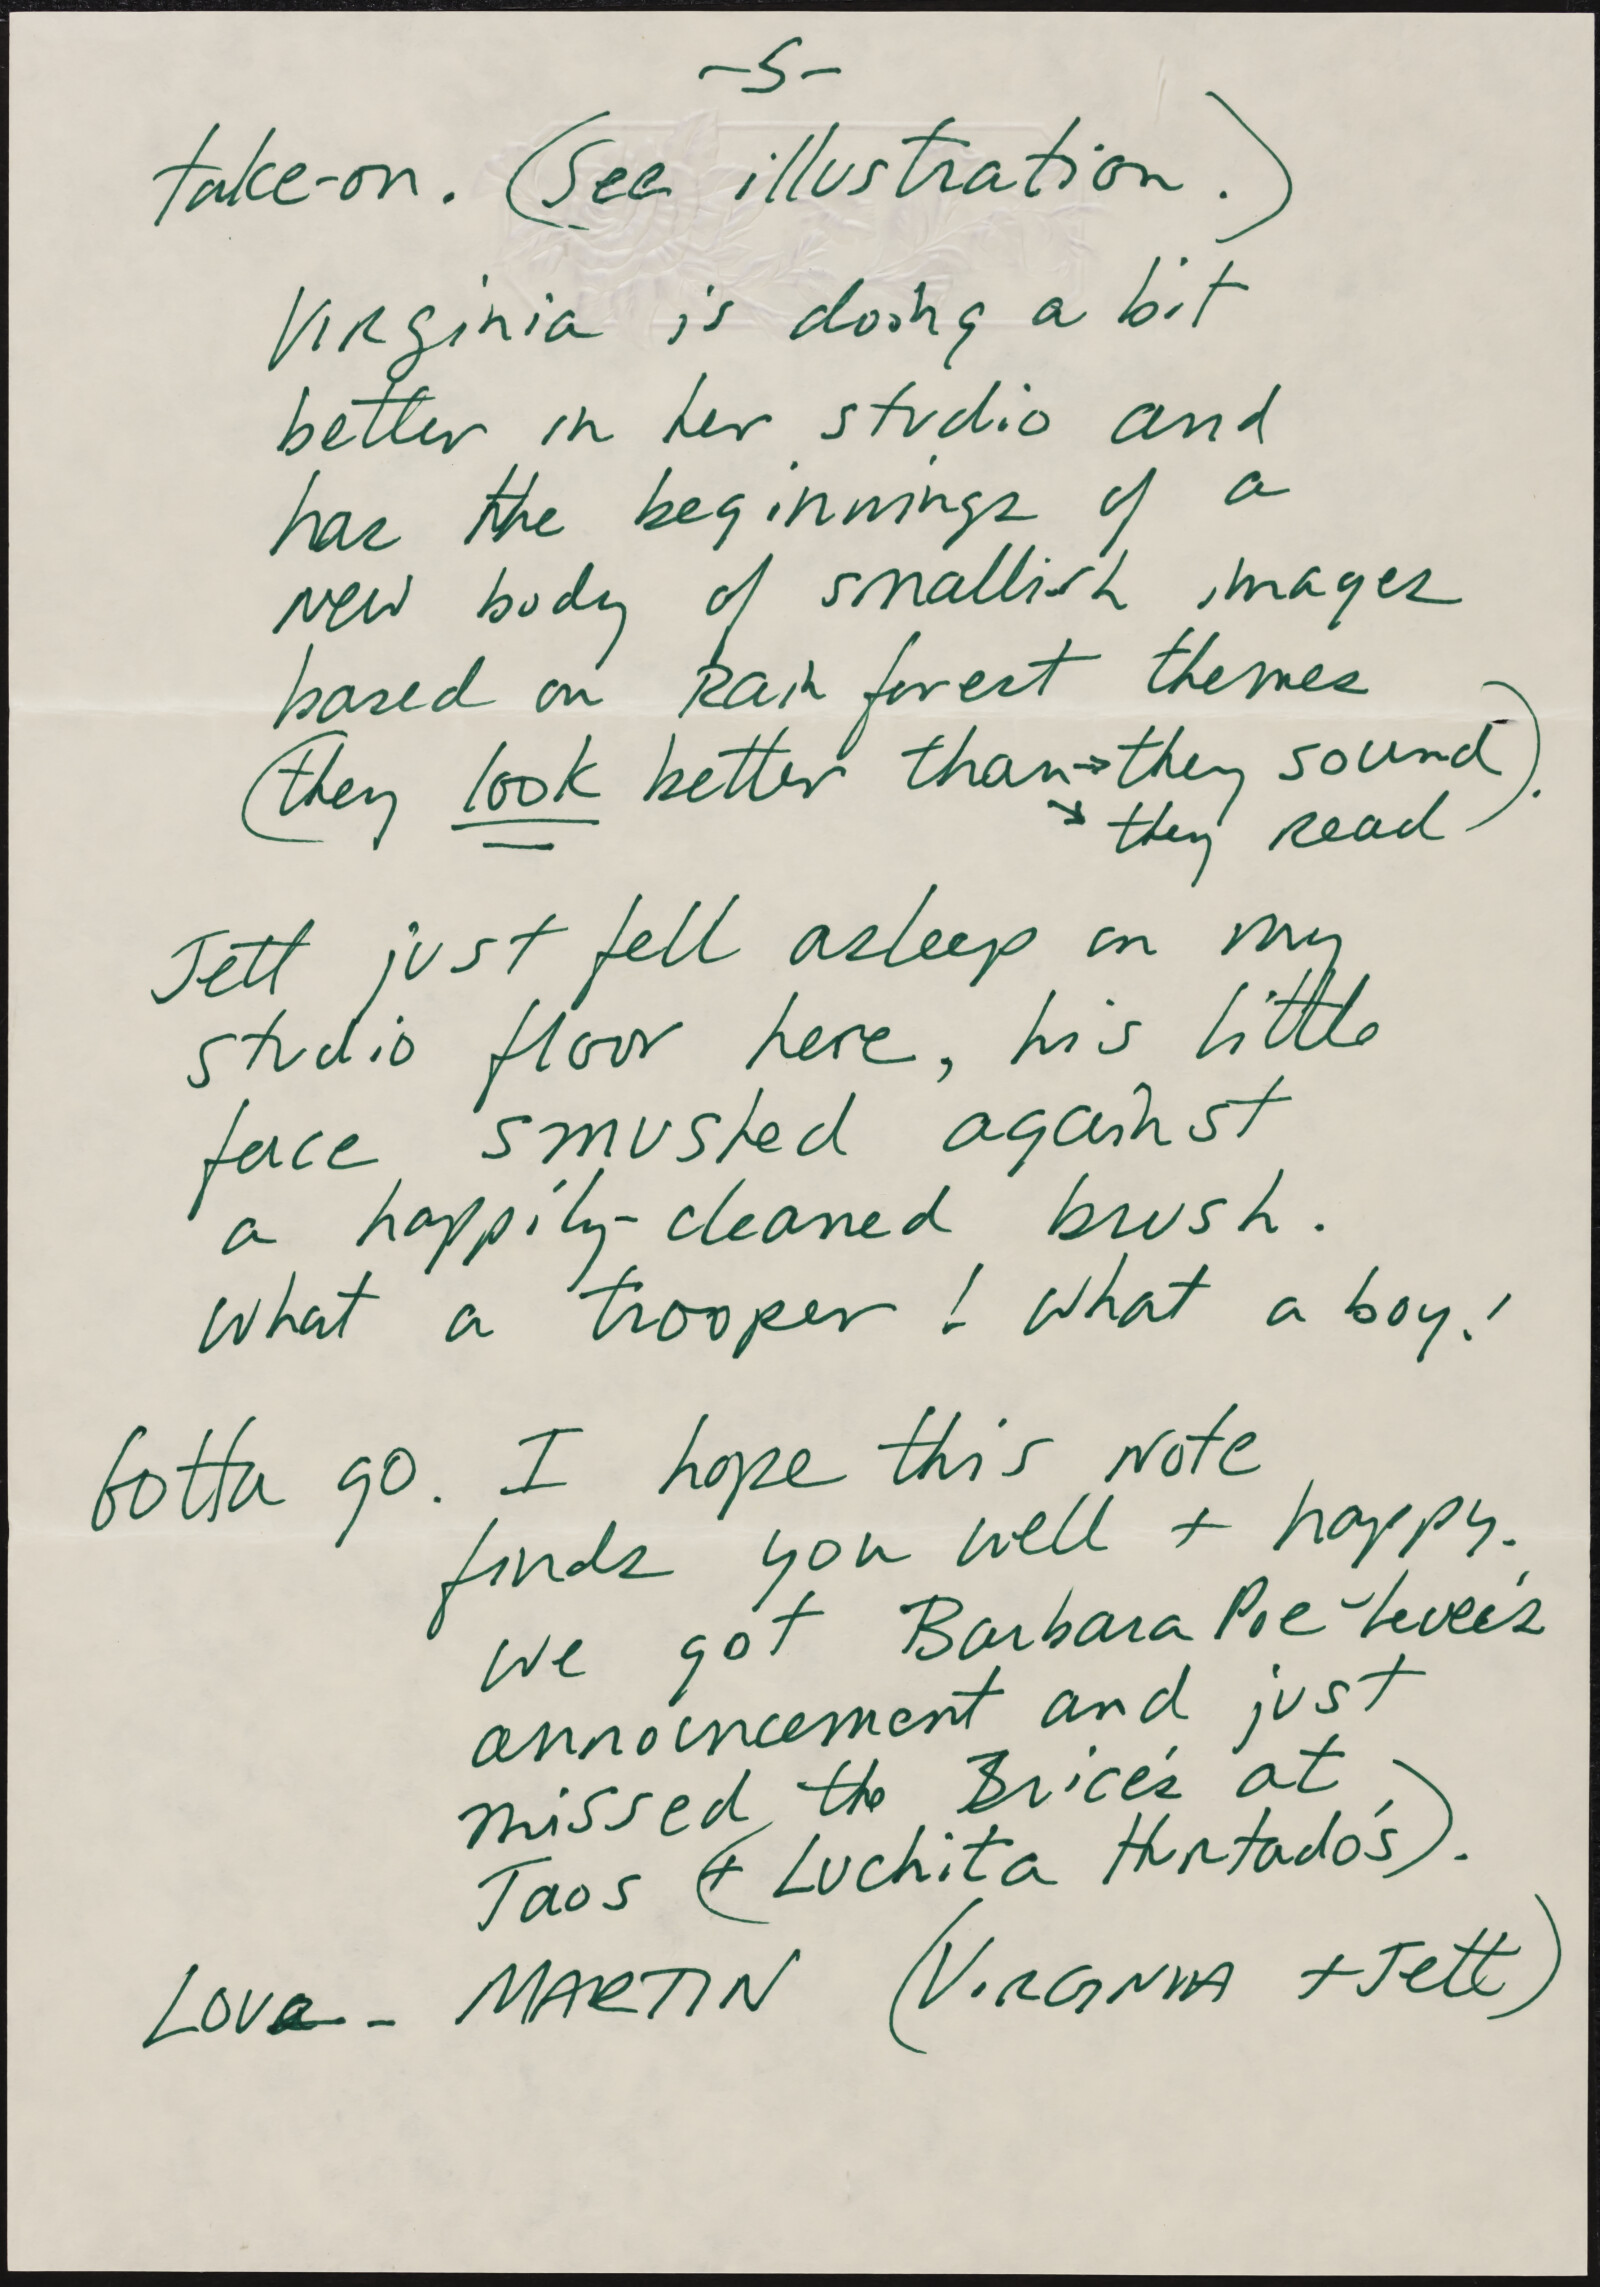 -5-
take-on. (See illustration.)
Virginia is doing a bit
better in her studio and
has the beginnings of a
new body of smallish images
based on Rain forest themes
(they look better than → they sound).
↘ they read
Jett just fell asleep on my
studio floor here, his little
face smushed against
a happily-cleaned brush.
What a trooper! What a boy!
Gotta go. I hope this note
finds you well + happy.
We got Barbara Poe-Levee's
announcement and just
missed the Brice's at
Taos (+ Luchita Hurtado's).
Love - MARTIN (VIRGINIA + Jett)